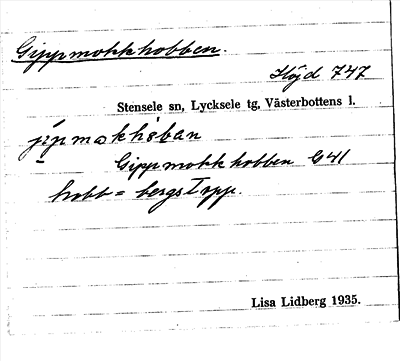 Gippmokkhobben.
Höjd 747
Stensele sn, Lycksele tg, Västerbottens l.
Gippmokkhobben G41
hobb = bergstopp.
Lisa Lidberg 1935.